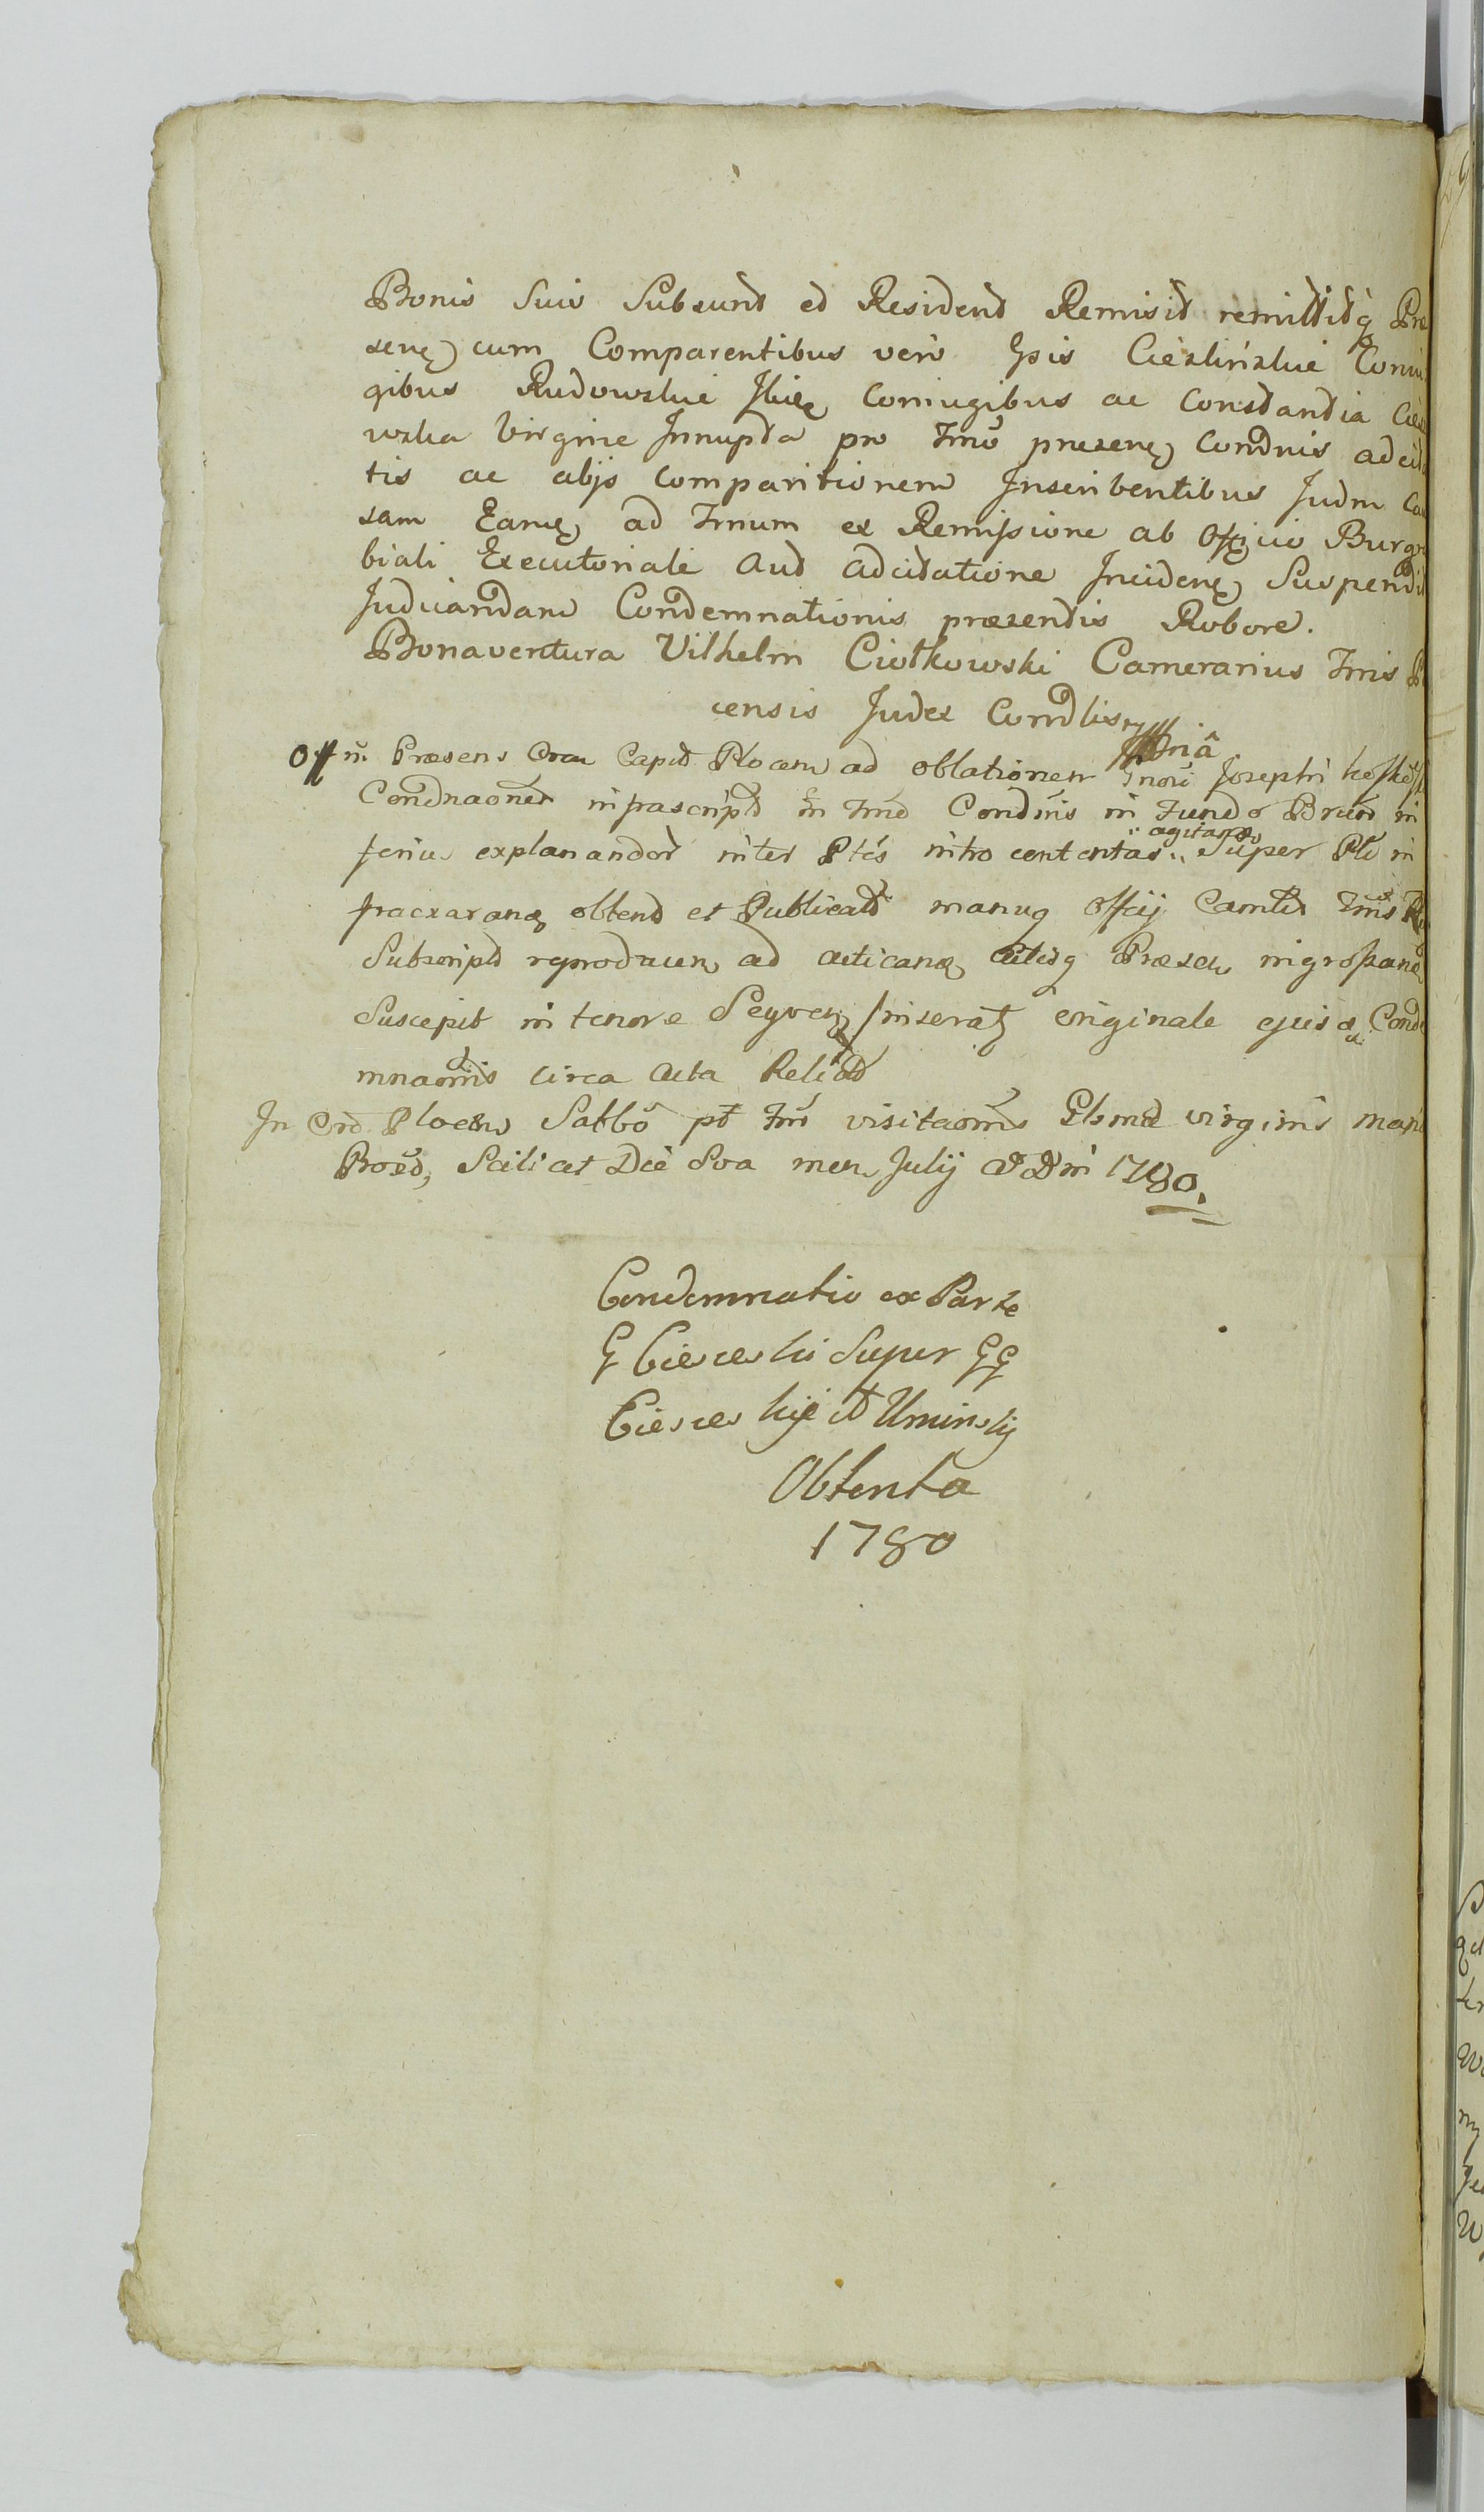 Bonis Suis Subsunt et Resident Remisit remittitq Præ
senę cum Comparentibus vero Gsis Ciesliński Coniu
gibus Rudowskie Coniugibus ac Constantia
wska Virgine Innupta pro Tmo præsenę Condnis adcita
tis ac alijs Comparitionem Inscribentibus Judm Cau
sam Eanę ad Tmum ex Remissione ab Officio Burgra
biali Executoriale Aut Adcitatione Incidenę Suspendit
Judicandam Condemnationis præsentis Robore.
Bonaventura Vilhelm Ciołkowski Camerarius Tmis
censis Judex Condlis
Off m Præsens Capit Plocen ad oblationem Gnosi Josephi
Condnaonem infrascript in Tmo Condnis in Fundo Bonor in
ferius explanandor inter Ptes intro contentas „agitano„ Super Pte in
fraexaranę obtent et Publicat manuq Offcij Camlis Tmis
Subscript reproducen ad acticanę Actisq Præsen ingrossanę
Suscepit in tenore Seqven /inserat/ originale ejusd Conde
mnaonis circa Acta Relict
In Crō Plocen Sabbo pt Fm visitaonis Gbsmæ virginis Mariæ
 Scilicet Die 8va men Julij A D 1780.
Condemnatio ex Parte
G Ciesceski Super GG
Ciesceskije et Uminskij
Obtenta
1780